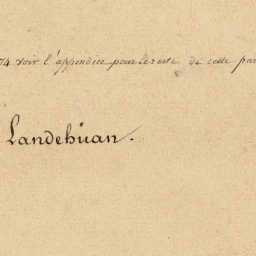 74 voir l'appendice pour le reste de cette par
Landehüan.